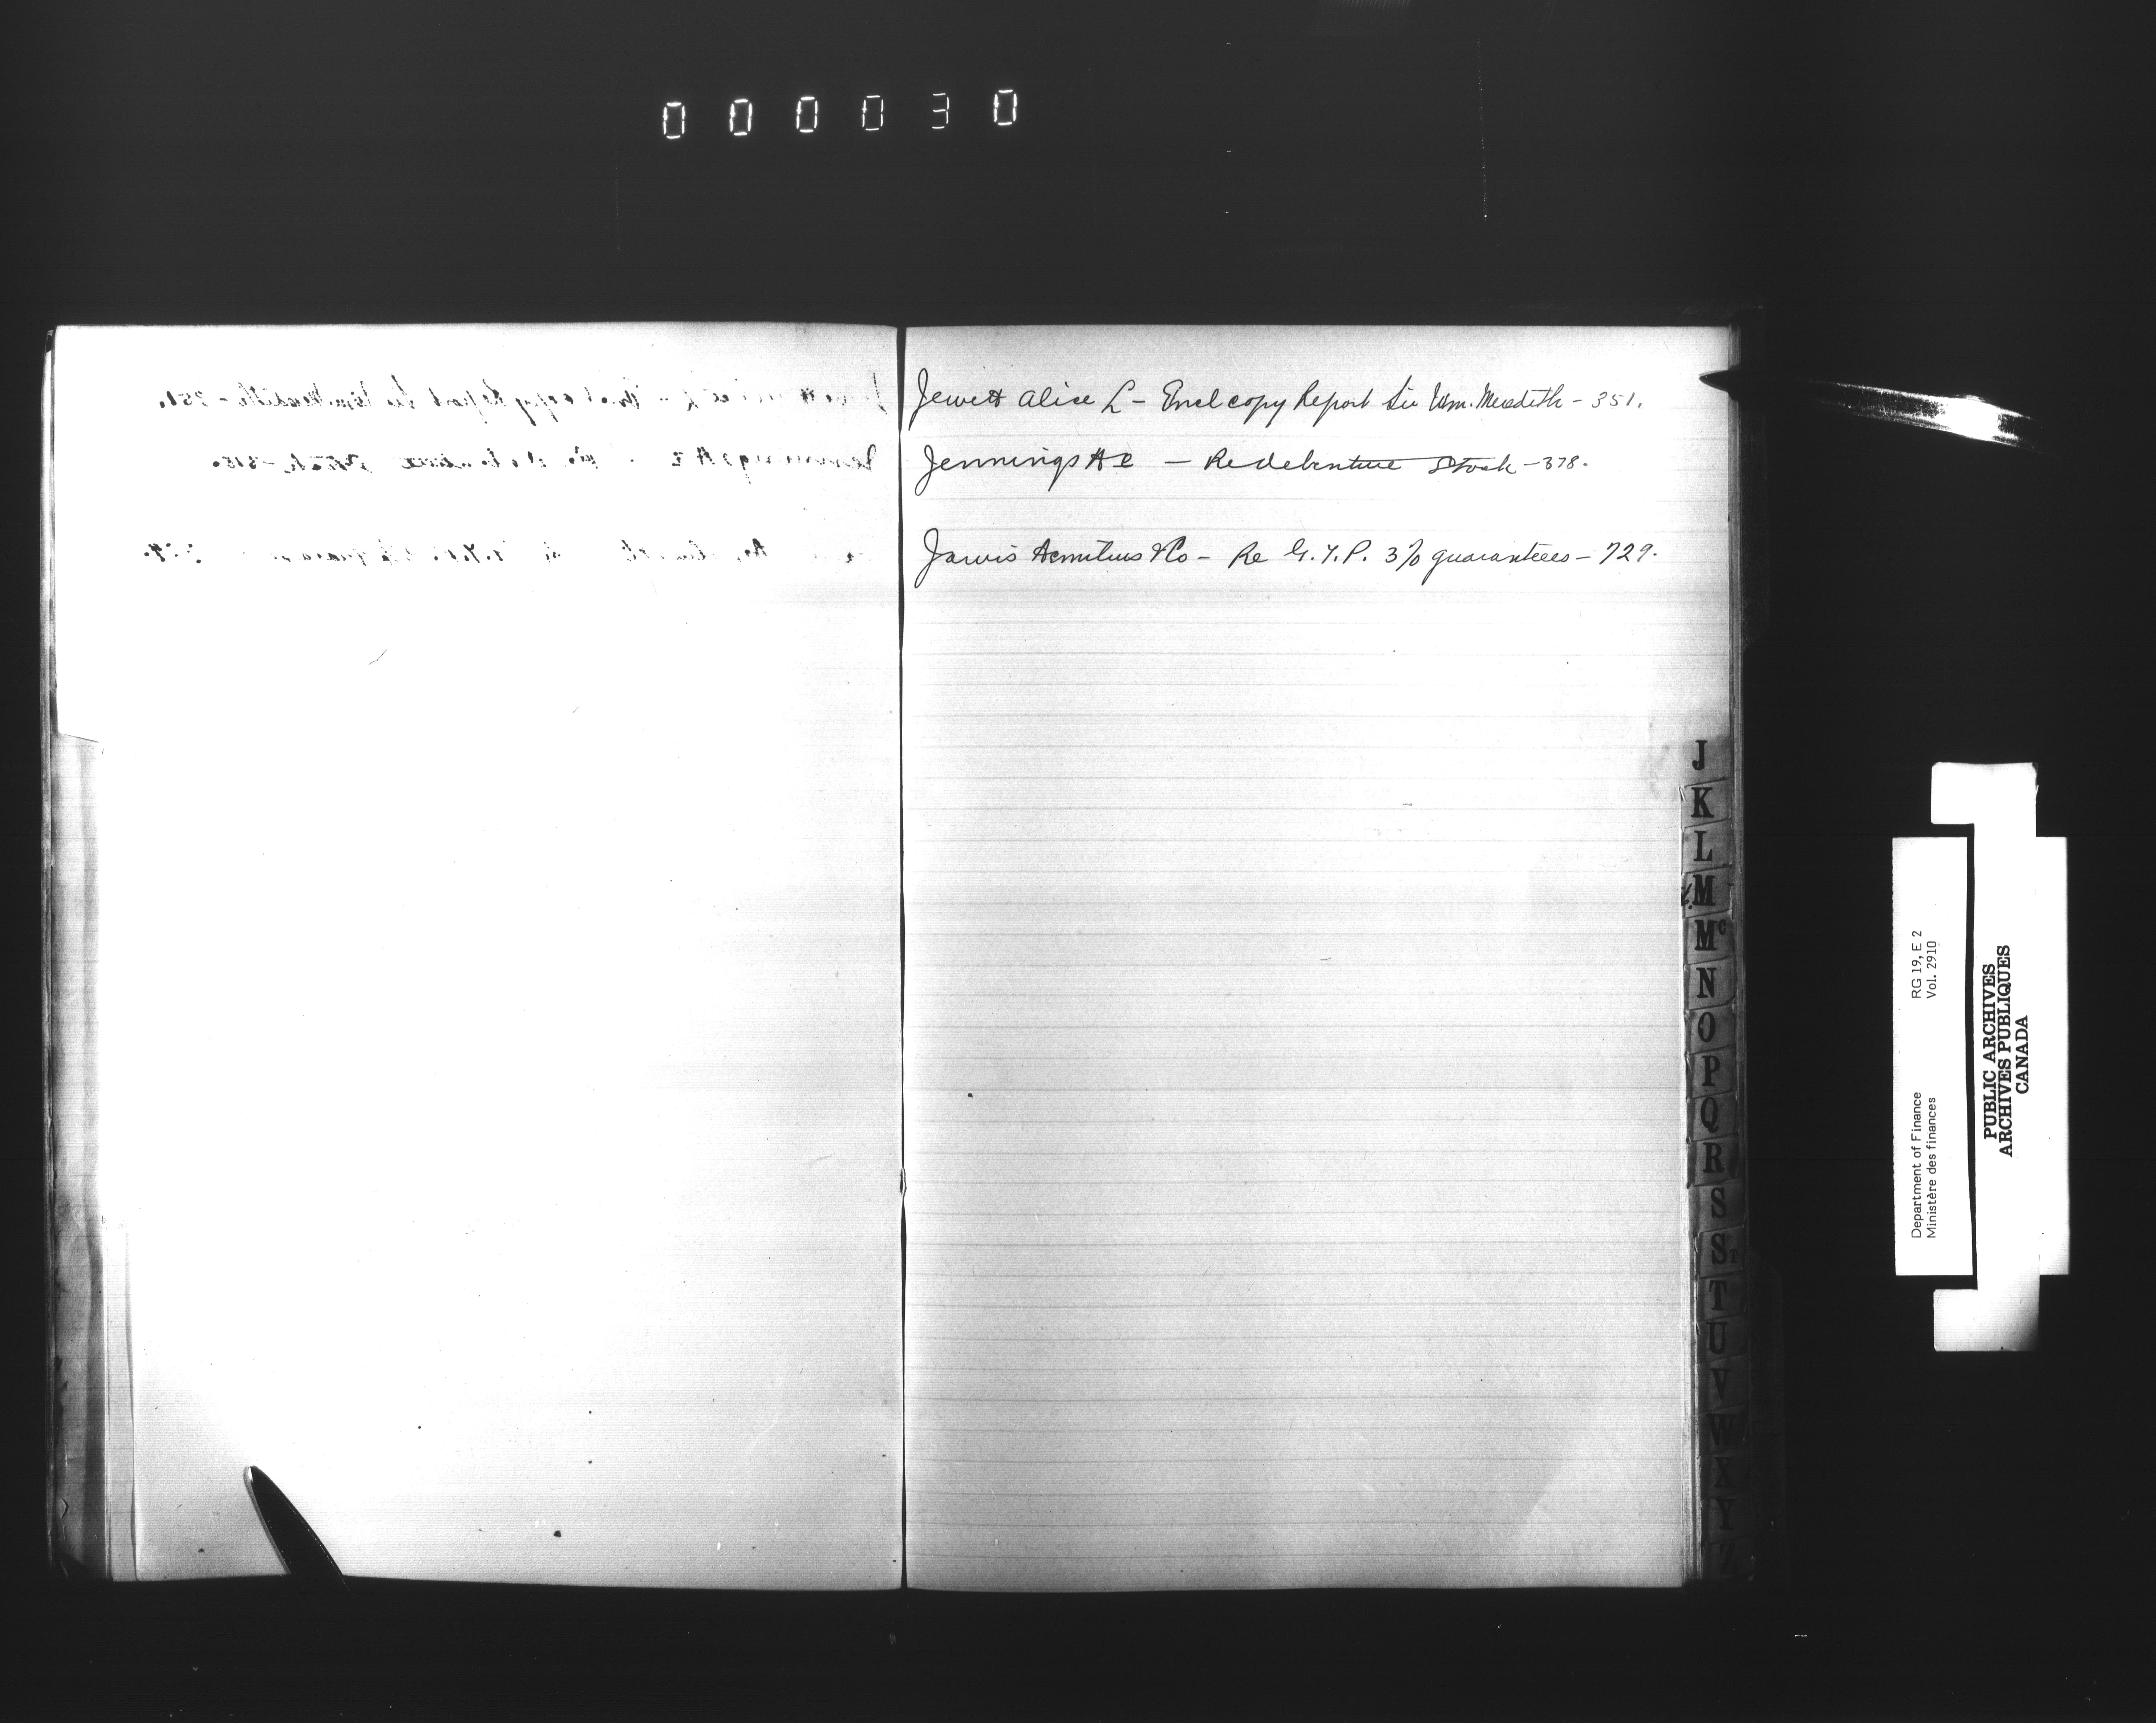 000030
Jewett Alice L - Encl copy Report Sir Wm. Meredith - 351.
Jennings A E - Re debenture Stock - 378.
Jarvis Aemilius & Co - Re G.T.P. 3% guarantees - 729.
J
K
L
M
Mc
N
O
P
Q
R
S
S
T
U
V
W
X
Y
Z
Department of Finance RG 19, E 2
Ministère des finances Vol. 2910
PUBLIC ARCHIVES
ARCHIVES PUBLIQUES
CANADA